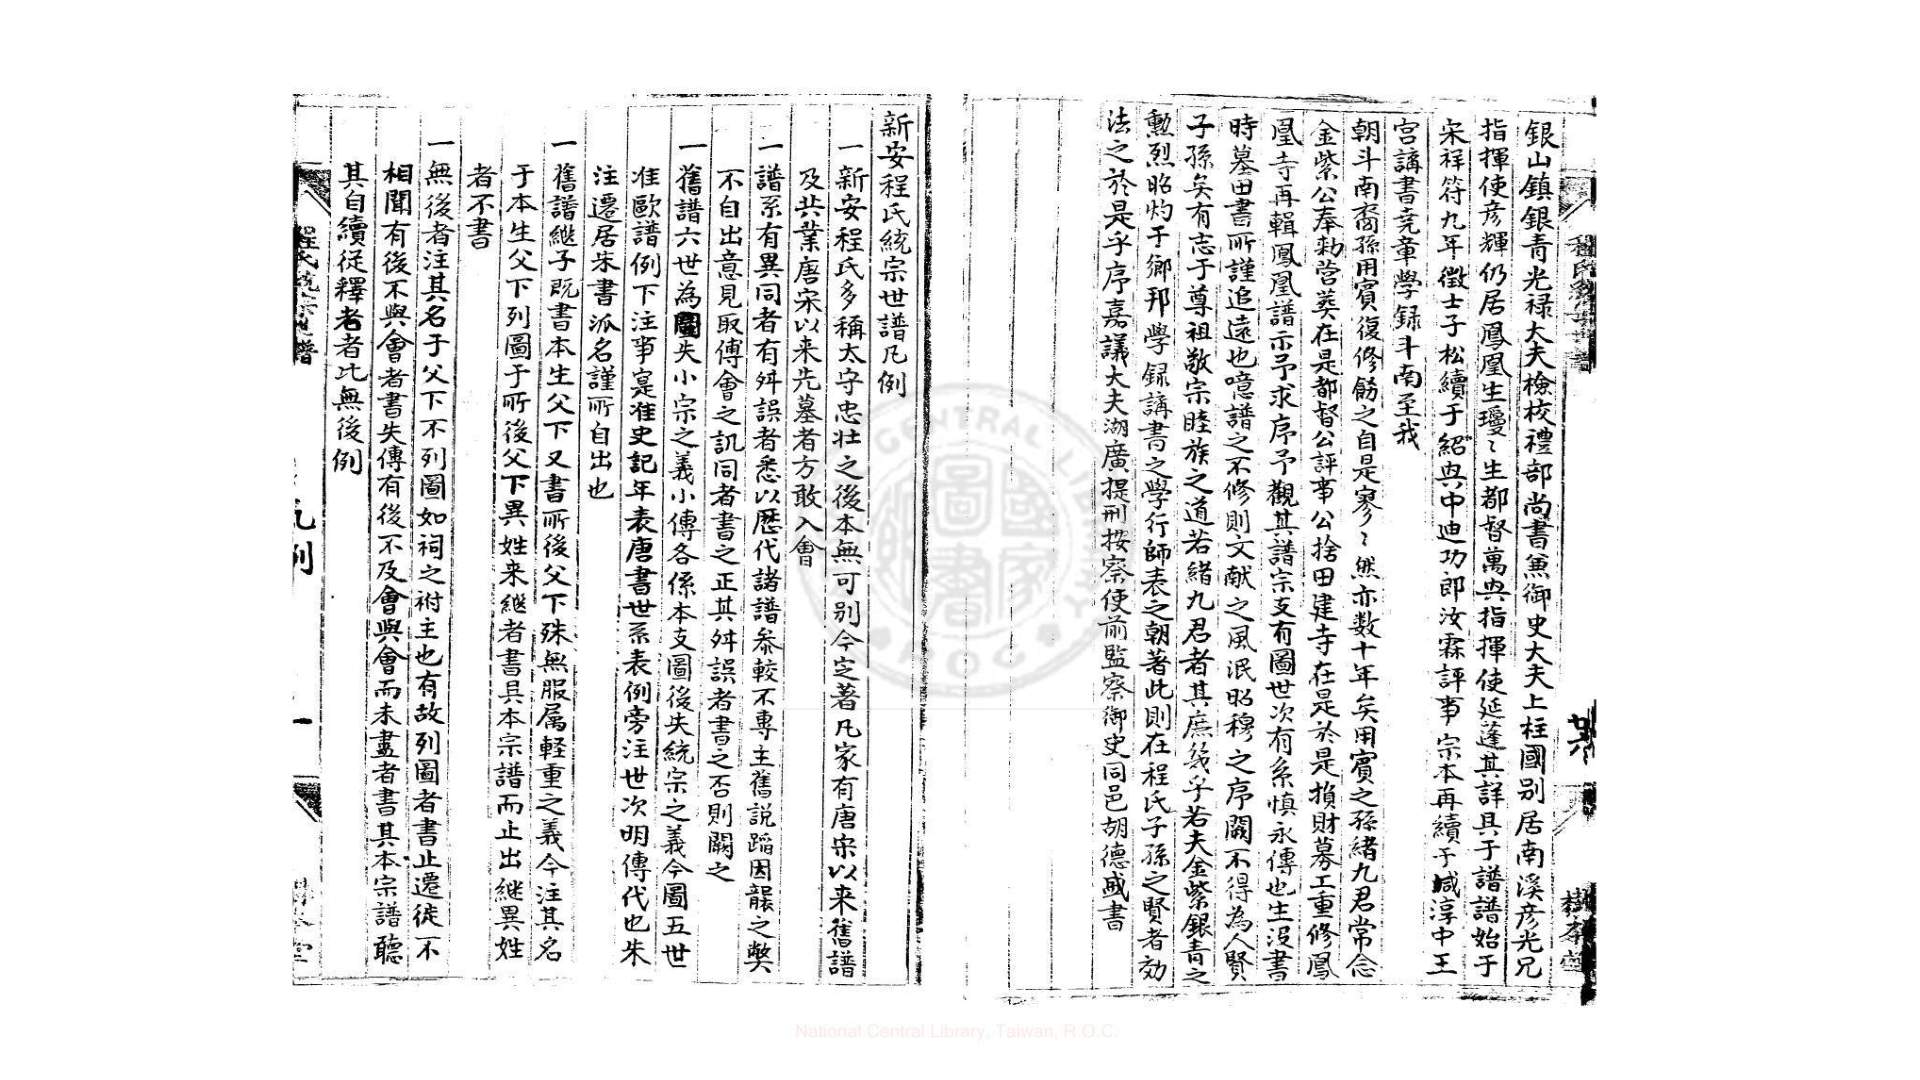 銀山鎮銀青光禄大夫檢校禮部尚書兼御史大夫上柱國别居南溪彦光兄
指揮使彦輝仍居鳳凰生瓊〻生都督萬與指揮使延蓬其詳具于譜譜始于
宋祥符九年徵士子松續于紹興中迪功郎汝霖評事宗本再續于咸淳中王
宫講書堯章學録斗南至我
朝斗南裔孫用賓復修飭之自是寥〻然亦数十年矣用賓之孫緒九君常念
金紫公奉勅营葬在是都督公評事公捨田建寺在是於是損財募工重修鳳
凰寺再輯鳳凰譜示予求序予觀其譜宗支有圖世次有系慎永傳也生没書
時墓田書所謹追遠也噫譜之不修則文献之风泯昭穆之序闕不得為人賢
子孫矣有志于尊祖敬宗睦族之道若緒九君者其庶幾乎若夫金紫銀青之
勲烈昭灼于鄉邦學録講書之學行師表之朝著此則在程氏子孫之賢者効
法之於是乎序嘉議大夫湖廣提刑按察使前監察御史同邑胡德盛書
新安程氏統宗世譜凡例
一新安程氏多稱太守忠壮之後本無可别今定著凡家有唐宋以来舊譜
及共業唐宋以来先墓者方敢入會
一譜系有異同者有舛誤者悉以歷代諸譜叅較不專主舊説蹈因襲之弊
不自出意見取傅會之訊同者書之正其舛誤者書之否則闕之
一舊譜六世為圖失小宗之義小傳各係本支圖後失統宗之義今圖五世
准歐譜例下注事寔准史記年表唐書世系表例旁注世次明傳代也朱
注遷居朱書派名謹所自出也
一舊譜継子既書本生父下又書所後父下殊無服属軽重之義今注其名
于本生父下列圖于所後父下異姓来継者書具本宗譜而止出継異姓
者不書
一無後者注其名于父下不列圖如祠之祔主也有故列圖者書止遷徙不
相聞有後不與會者書失傳有後不及會與會而未盡者書其本宗譜聽
其自續従釋者者比無後例
程氏統宗世譜
凡例
一
National Central Library, Taiwan, R.O.C.